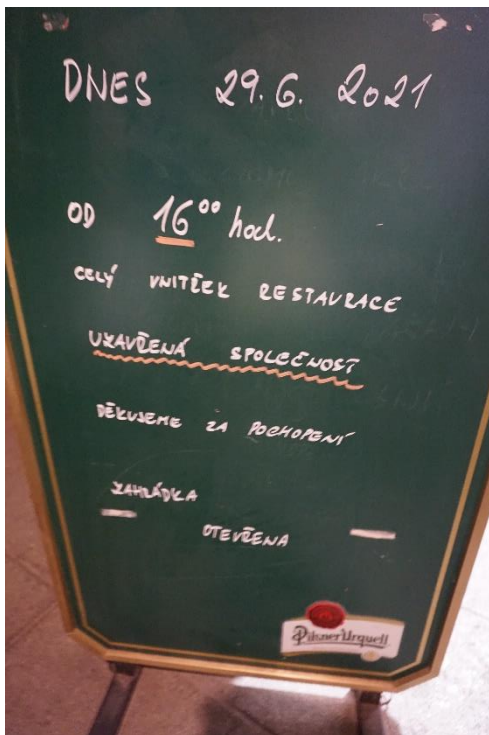 DNES 29. 6. 2021
OD 16⁰⁰ hod.
CELÝ VNITŘEK RESTAURACE
UZAVŘENÁ SPOLEČNOST
DĚKUJEME ZA POCHOPENÍ
ZAHRÁDKA
OTEVŘENA
Pilsner Urquell